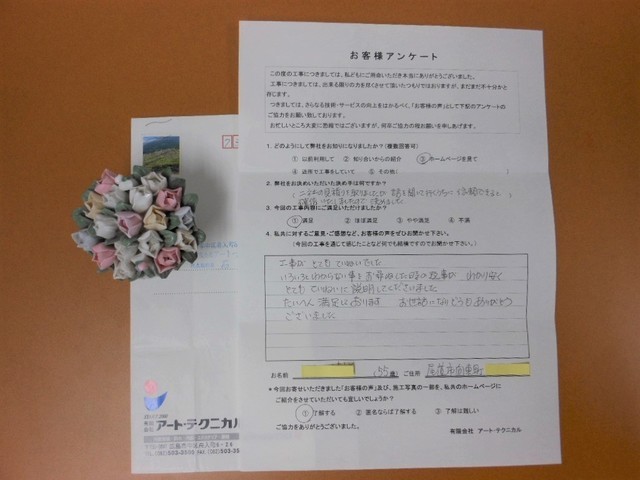 お客様アンケート
この度の工事につきましては、私どもにご用命いただき本当にありがとうございました。
工事につきましては、出来る限りの力を尽くさせて頂いたつもりではおりますが、まだまだ不十分かと
存じます。
つきましては、さらなる技術・サービスの向上をはかるべく、「お客様の声」として下記のアンケートの
ご協力をお願い致しております。
お忙しいところ大変に恐縮ではございますが、何卒ご協力の程お願いを申しあげます。
1. どのようにして弊社をお知りになりましたか?(複数回答可)
① 以前利用して ② 知り合いからの紹介 ③ ホームページを見て
④ 近所で工事をしていて ⑤ その他(
2. 弊社をお決めいただいた決め手は何ですか?
3. 今回の工事内容にご満足いただけましたか?
① 満足 ② ほぼ満足 ③ やや満足 ④ 不満
4. 私共に対するご意見・ご感想など、お客様の声をぜひお聞かせ下さい。
(今回の工事を通じて感じたことなど何でも結構ですのでお聞かせ下さい)
工事が とても ていねいでした
いろいろわからない事を お尋ねした時の返事が わかり安く
とても ていねいに 説明してくださいました
たいへん 満足して おります お世話になりどうもありがとう
ございました
お名前 (55歳) ご住所 尾道市向東町
*今回お寄せいただきました「お客様の声」及び、施工写真の一部を、私共のホームページに
ご紹介をさせていただいても宜しいでしょうか?
① 了解する ② 匿名ならば了解する ③ 了解は難しい
ご協力をありがとうございました。
有限会社 アート・テクニカル
有限
会社 アート・テクニカル